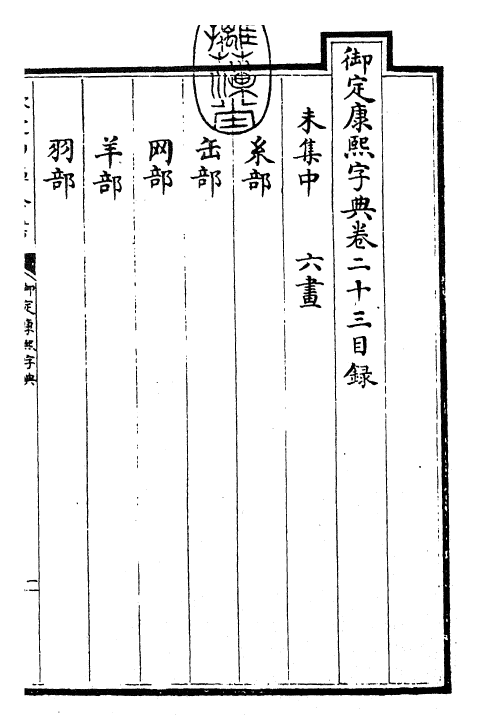 御定康熙字典卷二十三目録
未集中　六畫
糸部
缶部
网部
羊部
羽部
御定康熙字典